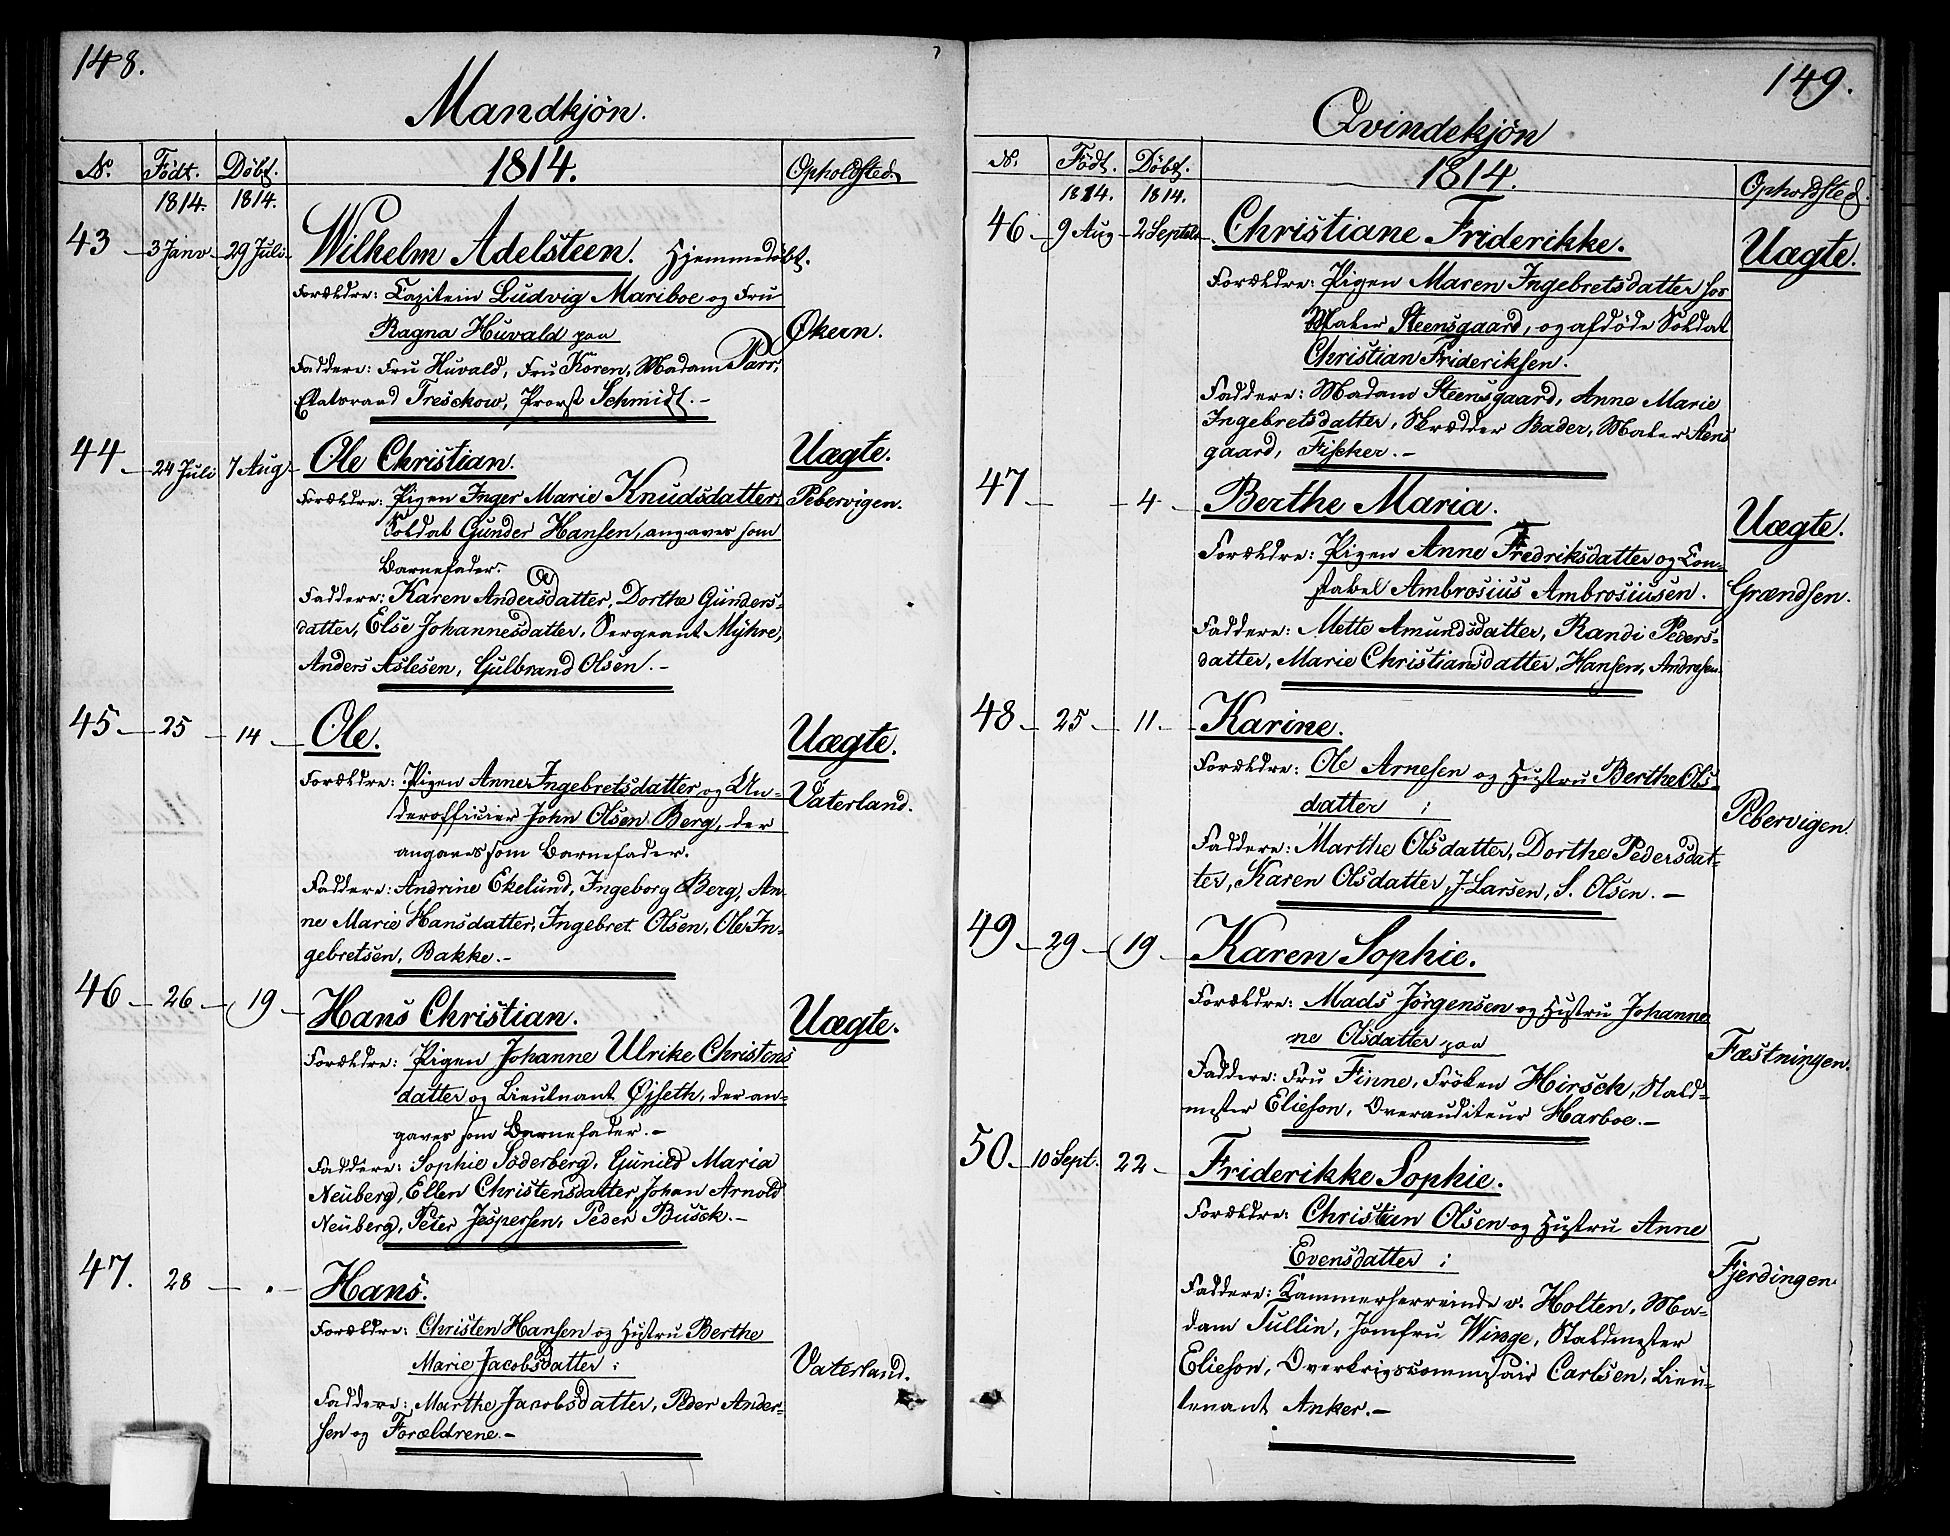 148.
Mandkjön.
No. Födt. Döbt. 1814. Opholdsted.
1814. 1814.
43 3 Janv 29 Juli Wilhelm Adelsteen. Hjemmedöbt.
Forældre: Capitein Ludvig Mariboe og Fru
Ragna Huvald paa Økern.
Faddere: Fru Huvald, Fru Koren, Madam Parr,
Etatsraad Treschow, Provst Schmidt.-
44 24 Juli 7 Aug. Ole Christian. Uægte.
Forældre: Pigen Inger Marie Knudsdatter, Pebervigen.
Soldat Gunder Hansen, angaves som
Barnefader.
Faddere: Karen Andersdatter, Dorthe Gunders-
datter, Else Johannesdatter, Sergeant Mÿhre,
Anders Aslesen, Gulbrand Olsen.-
45 25 14 Ole. Uægte.
Forældre: Pigen Anne Ingebretsdatter og Un- Vaterland.
derofficier John Olsen Berg, der
angaves som Barnefader.
Faddere: Andrine Ekelund, Ingeborg Berg, An-
ne Marie Hansdatter, Ingebret Olsen, Ole In-
gebretsen, Bakke.-
46 26 19 Hans Christian. Uægte.
Forældre: Pigen Johanne Ulrike Christens
datter og Lieutnant Øjseth, der an-
gaves som Barnefader.-
Faddere: Sophie Söderberg, Gunild Maria
Neuberg, Ellen Christensdatter, Johan Arnold
Neuberg, Peter Jespersen, Peder Busck.-
47. 28 Hans.
Forældre: Christen Hansen og Hustru Berthe
Marie Jacobsdatter: Vaterland.
Faddere: Marthe Jacobsdatter, Peder Ander-
sen og Forældrene.-
149.
Qvindekjön
No. Födt. Döbt. 1814. Opholdsted.
1814. 1814.
46 9 Aug 2 Septbr Christiane Friderikke. Uægte.
Forældre: Pigen Maren Ingebretsdatter hos
Maler Steensgaard, og afdöde Soldat
Christian Frideriksen.
Faddere: Madam Steensgaard, Anne Marie
Ingebretsdatter, Skrædder Bader, Maler Stens
gaard, Fischer.-
47 4 Berthe Maria. Uægte.
Forældre: Pigen Anne Fredriksdatter og Con-
stabel Ambrosius Ambrosiusen. Grændsen.
Faddere: Mette Amundsdatter, Randi Peders-
datter, Marie Christiansdatter, Hansen, Andresen.
48 25 11 Karine.
Forældre: Ole Arnesen og Hustru Berthe Ols-
datter: Pebervigen.
Faddere: Marthe Olsdatter, Dorthe Pedersdat-
ter, Karen Olsdatter, J. Larsen, S. Olsen.-
49 29 19 Karen Sophie.
Forældre: Mads Jörgensen og Hustru Johanne
ne Olsdatter paa Fæstningen.
Faddere: Fru Finne, Fröken Hirsch, Stald-
mester Elieson, Overauditeur Harboe.-
50 10 Sept. 22 Friderikke Sophie.
Forældre: Christian Olsen og Hustru Anne
Evensdatter: Fjerdingen
Faddere: Kammerherreinde v. Holten, Ma-
dam Tullin, Jomfru Winge, Staldmester
Elieson, Overkrigscommissair Carlsen, Lieu-
tenant Anker.-